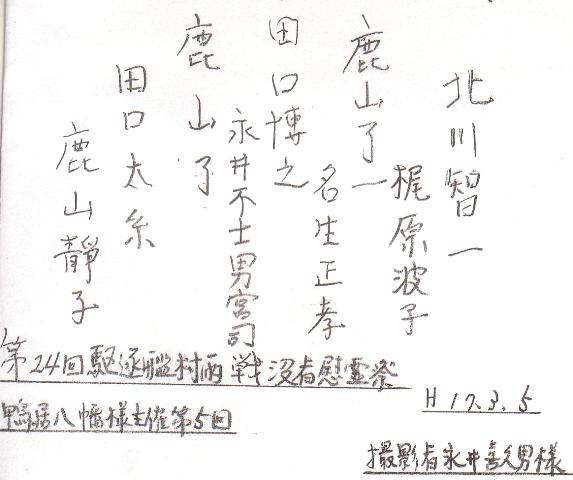 北川智一
梶原波子
鹿山了一
名生正孝
田口博之
永井不士男宮司
鹿山了
田口太糸
鹿山靜子
第24回駆逐艦村雨戦没者慰霊祭
鴨居八幡様主催第5回
H17.3.5
撮影者永井喜久男様